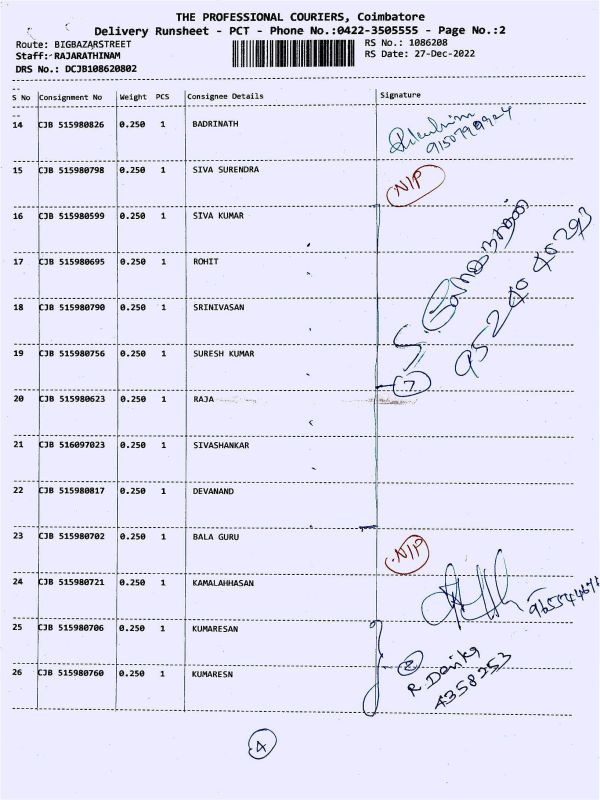 THE PROFESSIONAL COURIERS, Coimbatore
Delivery Runsheet - PCT - Phone No.:0422-3505555 - Page No.:2
Route: BIGBAZARSTREET RS No.: 1086208
Staff: RAJARATHINAM RS Date: 27-Dec-2022
DRS No.: DCJB108620802
S No Consignment No Weight PCS Consignee Details Signature
14 CJB 515980826 0.250 1 BADRINATH
15 CJB 515980798 0.250 1 SIVA SURENDRA N/P
16 CJB 515980599 0.250 1 SIVA KUMAR
17 CJB 515980695 0.250 1 ROHIT
18 CJB 515980790 0.250 1 SRINIVASAN
19 CJB 515980756 0.250 1 SURESH KUMAR
95240 40293
7
20 CJB 515980623 0.250 1 RAJA
21 CJB 516097023 0.250 1 SIVASHANKAR
22 CJB 515980817 0.250 1 DEVANAND
23 CJB 515980702 0.250 1 BALA GURU N/P
24 CJB 515980721 0.250 1 KAMALAHHASAN
25 CJB 515980706 0.250 1 KUMARESAN
2
26 CJB 515980760 0.250 1 KUMARESN
4358253
4